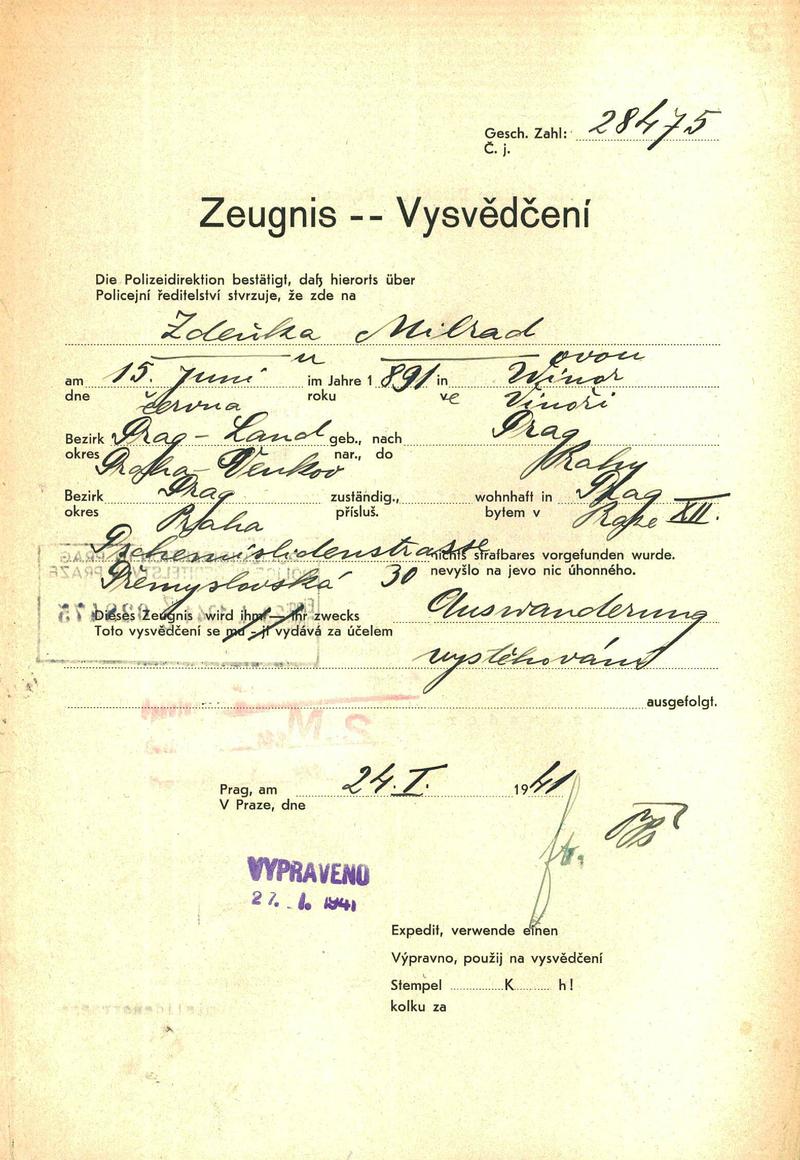 Gesch. Zahl: 28475
Č. j.
Zeugnis -- Vysvědčení
Die Polizeidirektion bestätigt, daß hierorts über
Policejní ředitelství stvrzuje, že zde na
Zdeňka Milrad
u ovou
am 15. Juni im Jahre 1891 in Winor
dne června roku ve Vinoři
Bezirk Prag-Land geb., nach Prag
okres Praha-Venkov nar., do Prahy
Bezirk Prag zuständig., wohnhaft in Prag XII.
okres Praha přísluš. bytem v Praze
Pschemislidenstrasse nichts strafbares vorgefunden wurde.
Přemyslovská 30 nevyšlo na jevo nic úhonného.
Dieses Zeugnis wird ihm - ihr zwecks Auswanderung
Toto vysvědčení se mu - jí vydává za účelem
vystěhování
ausgefolgt.
Prag, am 24. I. 1941
V Praze, dne
VYPRAVENO
27. 1. 1941
Expedit, verwende einen
Výpravno, použij na vysvědčení
Stempel K h!
kolku za